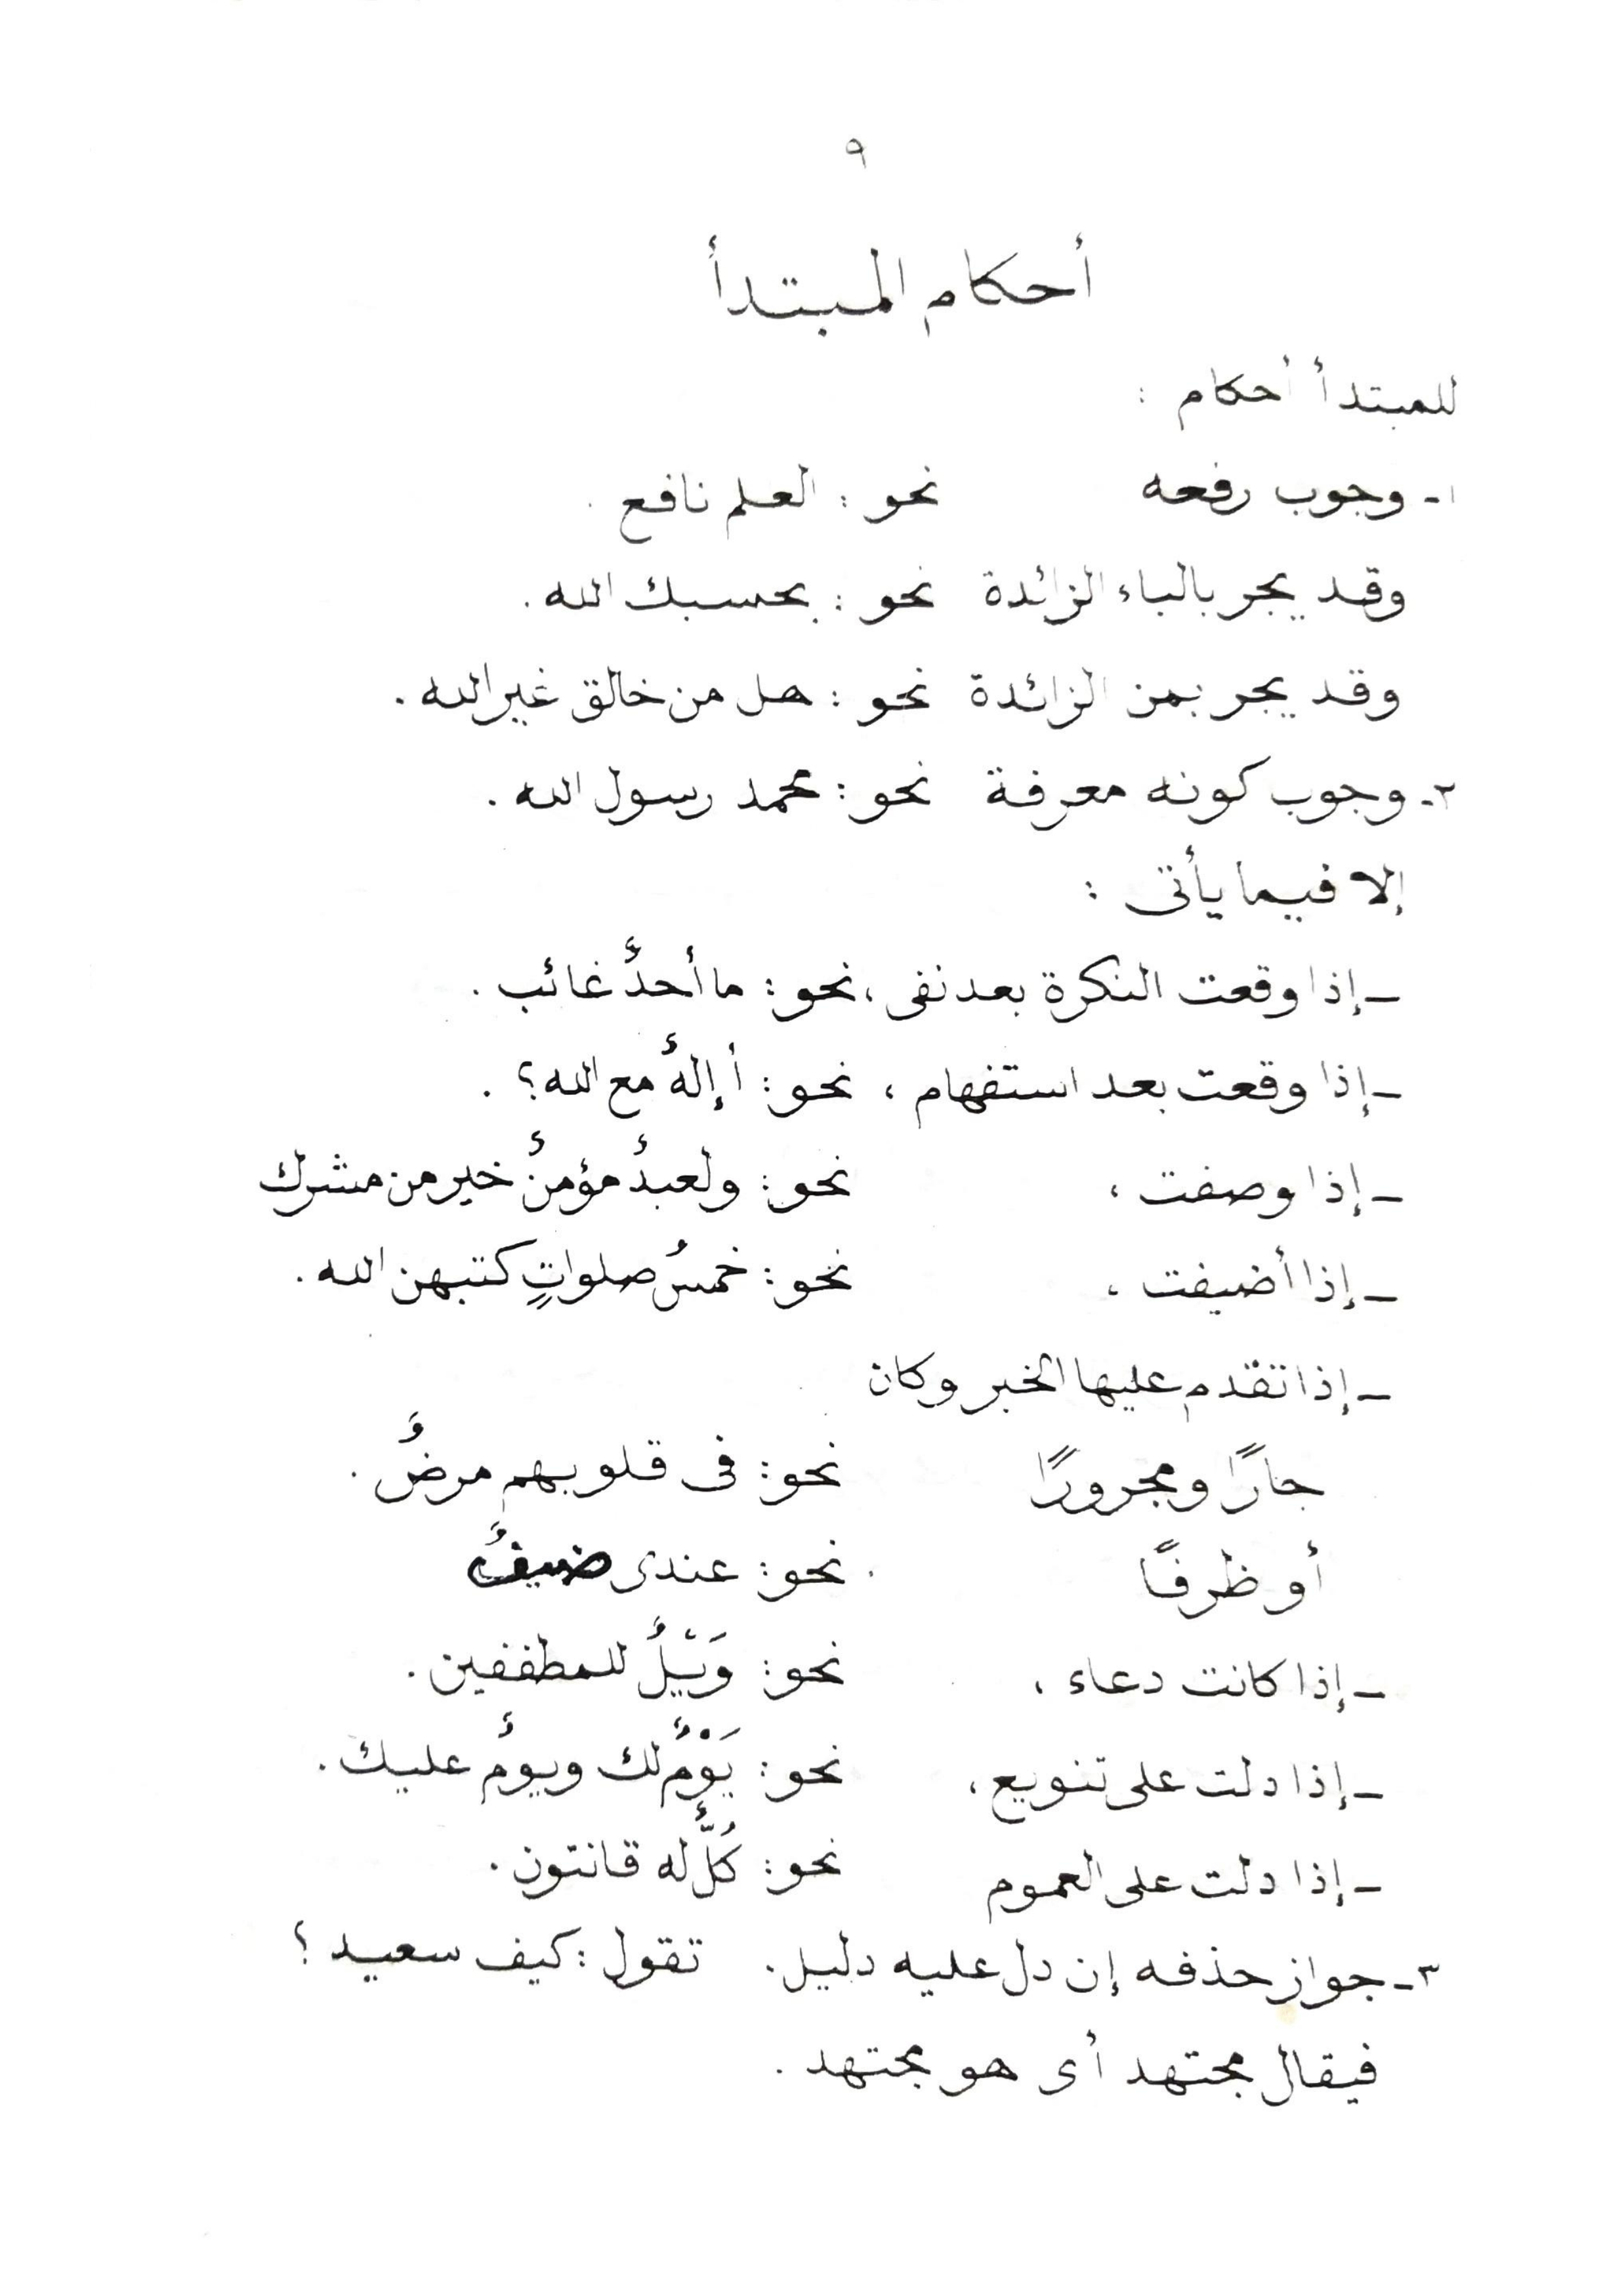 ٩
أحكام المبتدأ
للمبتدأ أحكام :
١- وجوب رفعه نحو : العلم نافع .
وقد يجر بالباء الزائدة نحو : بحسبك الله .
وقد يجر بمن الزائدة نحو : هل من خالق غير الله .
٢- وجوب كونه معرفة نحو : محمد رسول الله .
إلا فيما يأتى :
- إذا وقعت النكرة بعد نفى ، نحو : ما أحدٌ غائب .
- إذا وقعت بعد استفهام ، نحو : أإلهٌ مع الله ؟ .
- إذا وصفت ، نحو : ولعبدٌ مؤمنٌ خير من مشرك
- إذا أضيفت ، نحو : خمسُ صلواتٍ كتبهن الله .
- إذا تقدم عليها الخبر وكان
جارًا ومجرورًا نحو : فى قلوبهم مرضٌ .
أو ظرفًا . نحو : عندى ضيفٌ
- إذا كانت دعاء ، نحو : وَيْلٌ للمطففين .
- إذا دلت على تنويع ، نحو : يَوْمٌ لك ويومٌ عليك .
- إذا دلت على العموم نحو : كُلٌّ له قانتون .
٣- جواز حذفه إن دل عليه دليل . تقول : كيف سعيد ؟
فيقال مجتهد أى هو مجتهد .